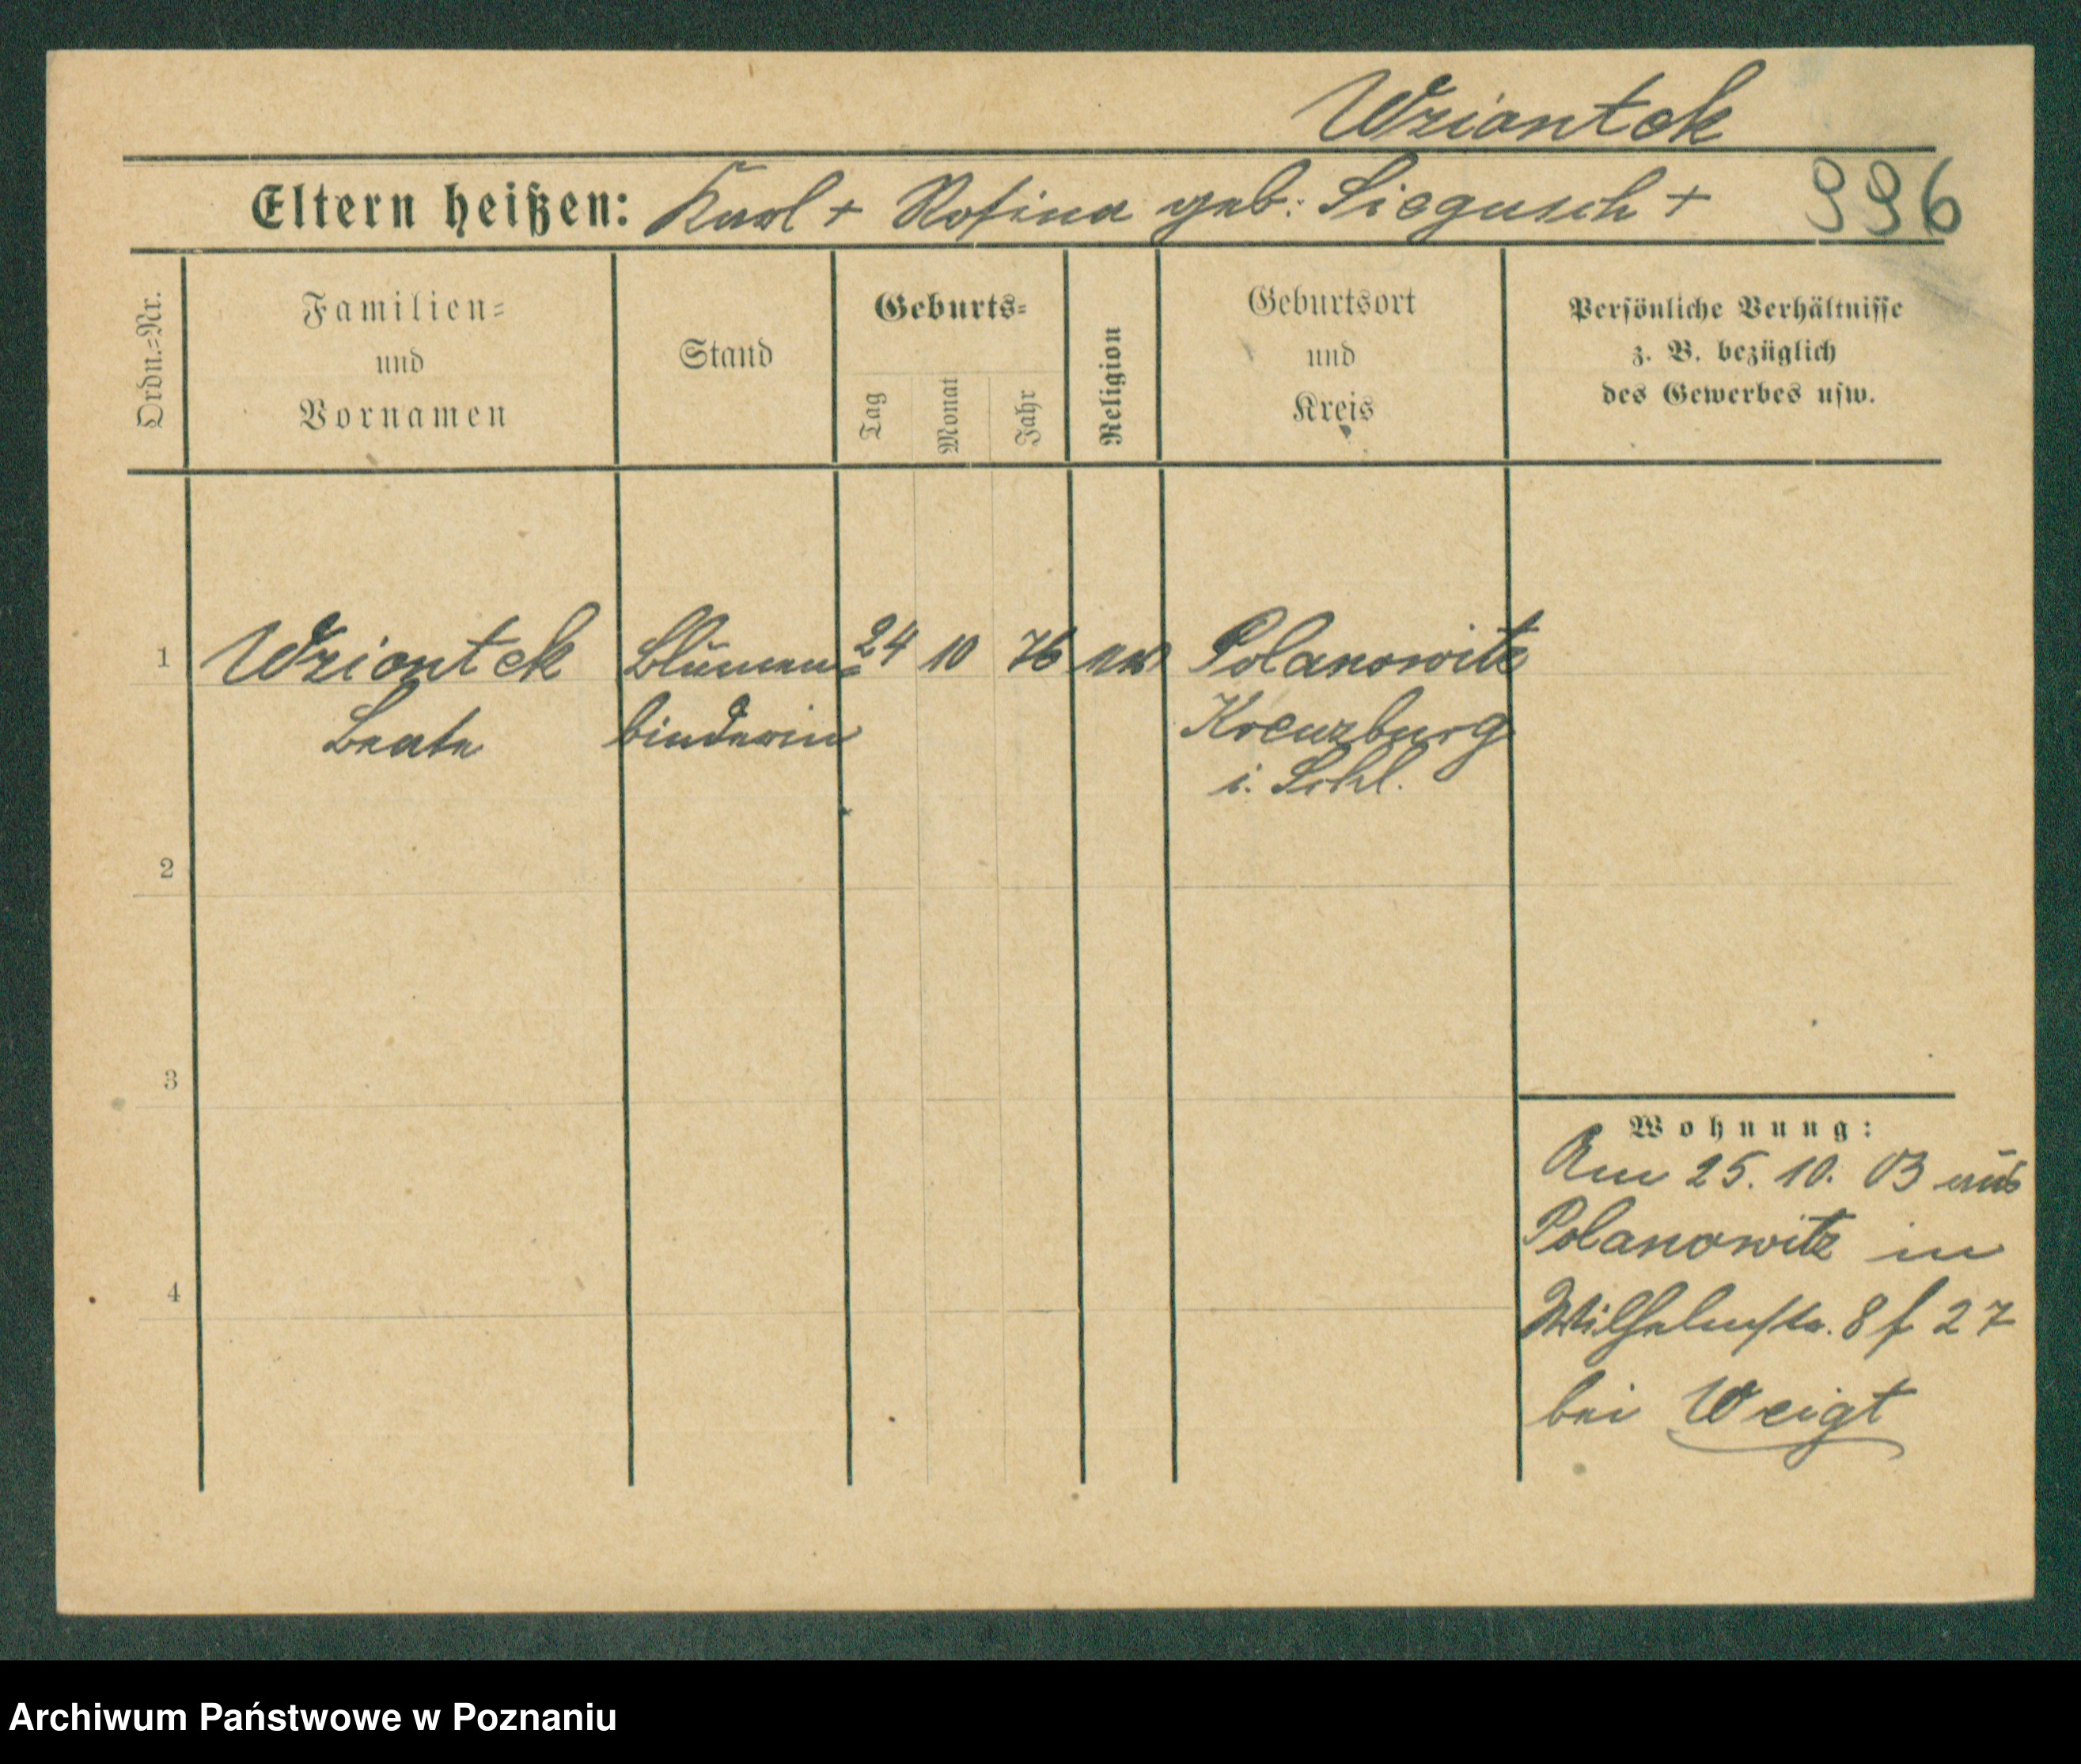 Wziontek
Eltern heißen: Karl + Rosina geb. Siegusch + 996
Ordn.=Nr.
Familien=
und
Vornamen
Stand
Geburts=
Tag
Monat
Jahr
Religion
Geburtsort
und
Kreis
Persönliche Verhältnisse
z. B. bezüglich
des Gewerbes usw.
1 Wziontek Blumen= 24 10 76 ev Polanowitz
Beate binderin Kreuzburg
i. Schl.
2
3
4
Wohnung:
Am 25. 10. 03 aus
Polanowitz in
Wilhelmstr. 8 f 27
bei Weigt
Archiwum Państwowe w Poznaniu